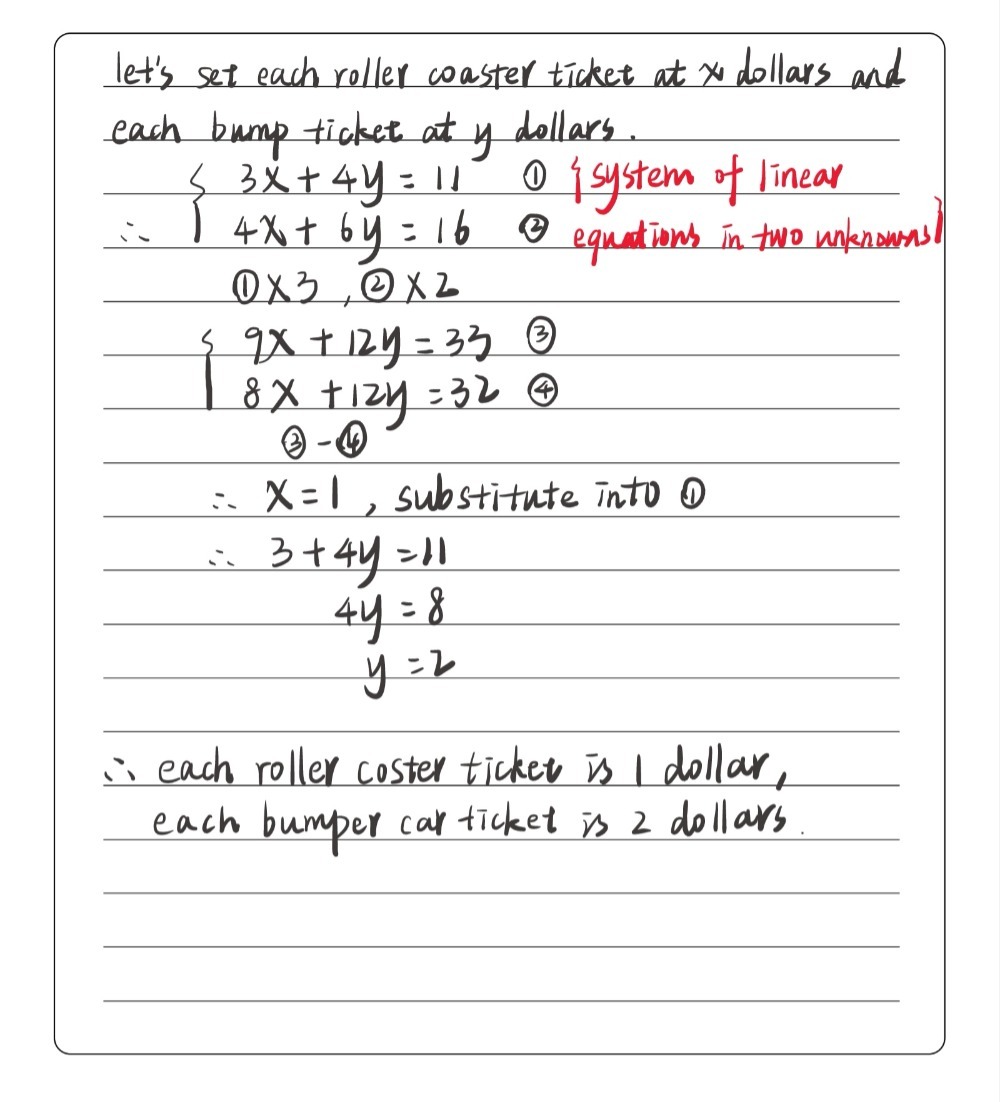 let's set each roller coaster ticket at x dollars and
each bump ticket at y dollars.
3x + 4y = 11 ① {system of linear
∴ 4x + 6y = 16 ② equations in two unknowns}
①×3, ②×2
9x + 12y = 33 ③
8x + 12y = 32 ④
③ - ④
∴ x = 1, substitute into ①
∴ 3 + 4y = 11
4y = 8
y = 2
∴ each roller coster ticket is 1 dollar,
each bumper car ticket is 2 dollars.